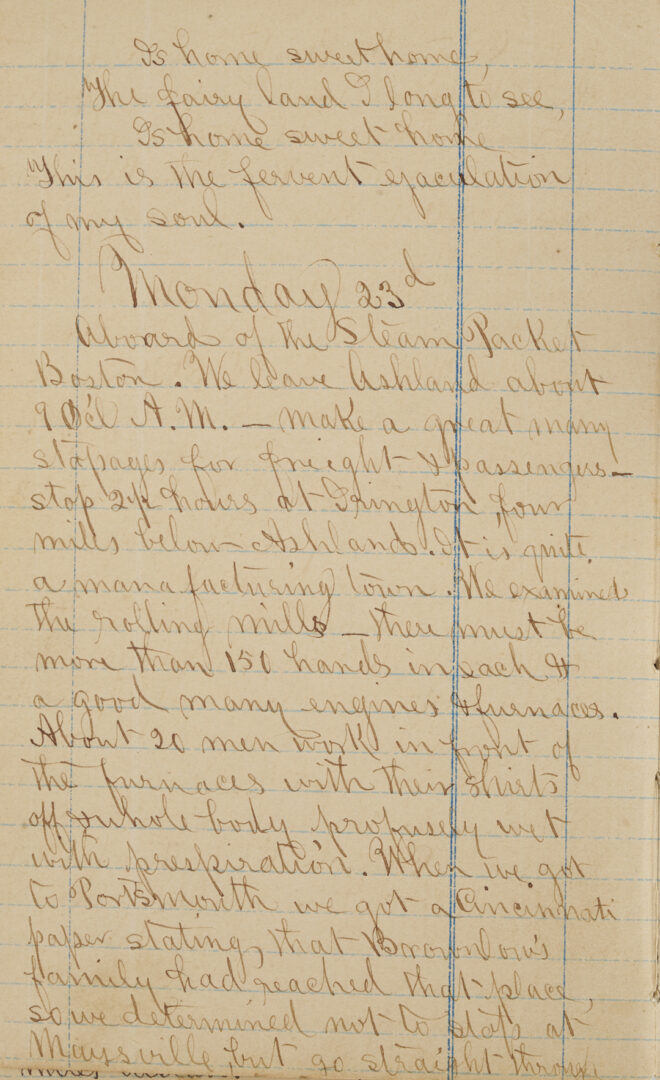 Is home sweet home,
The fairy land I long to see,
Is home sweet home
This is the fervent ejaculation
of my soul.
Monday 23d
Aboard of the Steam Packet
Boston. We leave Ashland about
9 Ocl A.M. — make a great many
stopages for freight & passengers —
stop 2½ hours at Irington, four
mills below Ashland. It is quite
a manafacturing town. We examined
the rolling mills — there must be
more than 150 hands in each &
a good many engines & furnaces.
About 20 men work in front of
the furnaces with their shirts
off & whole body profusely wet
with prespiration. When we got
to Portsmouth we got a Cincinnati
paper stating, that Brownlow's
family had reached that place,
so we determined not to stop at
Maysville, but go straight through